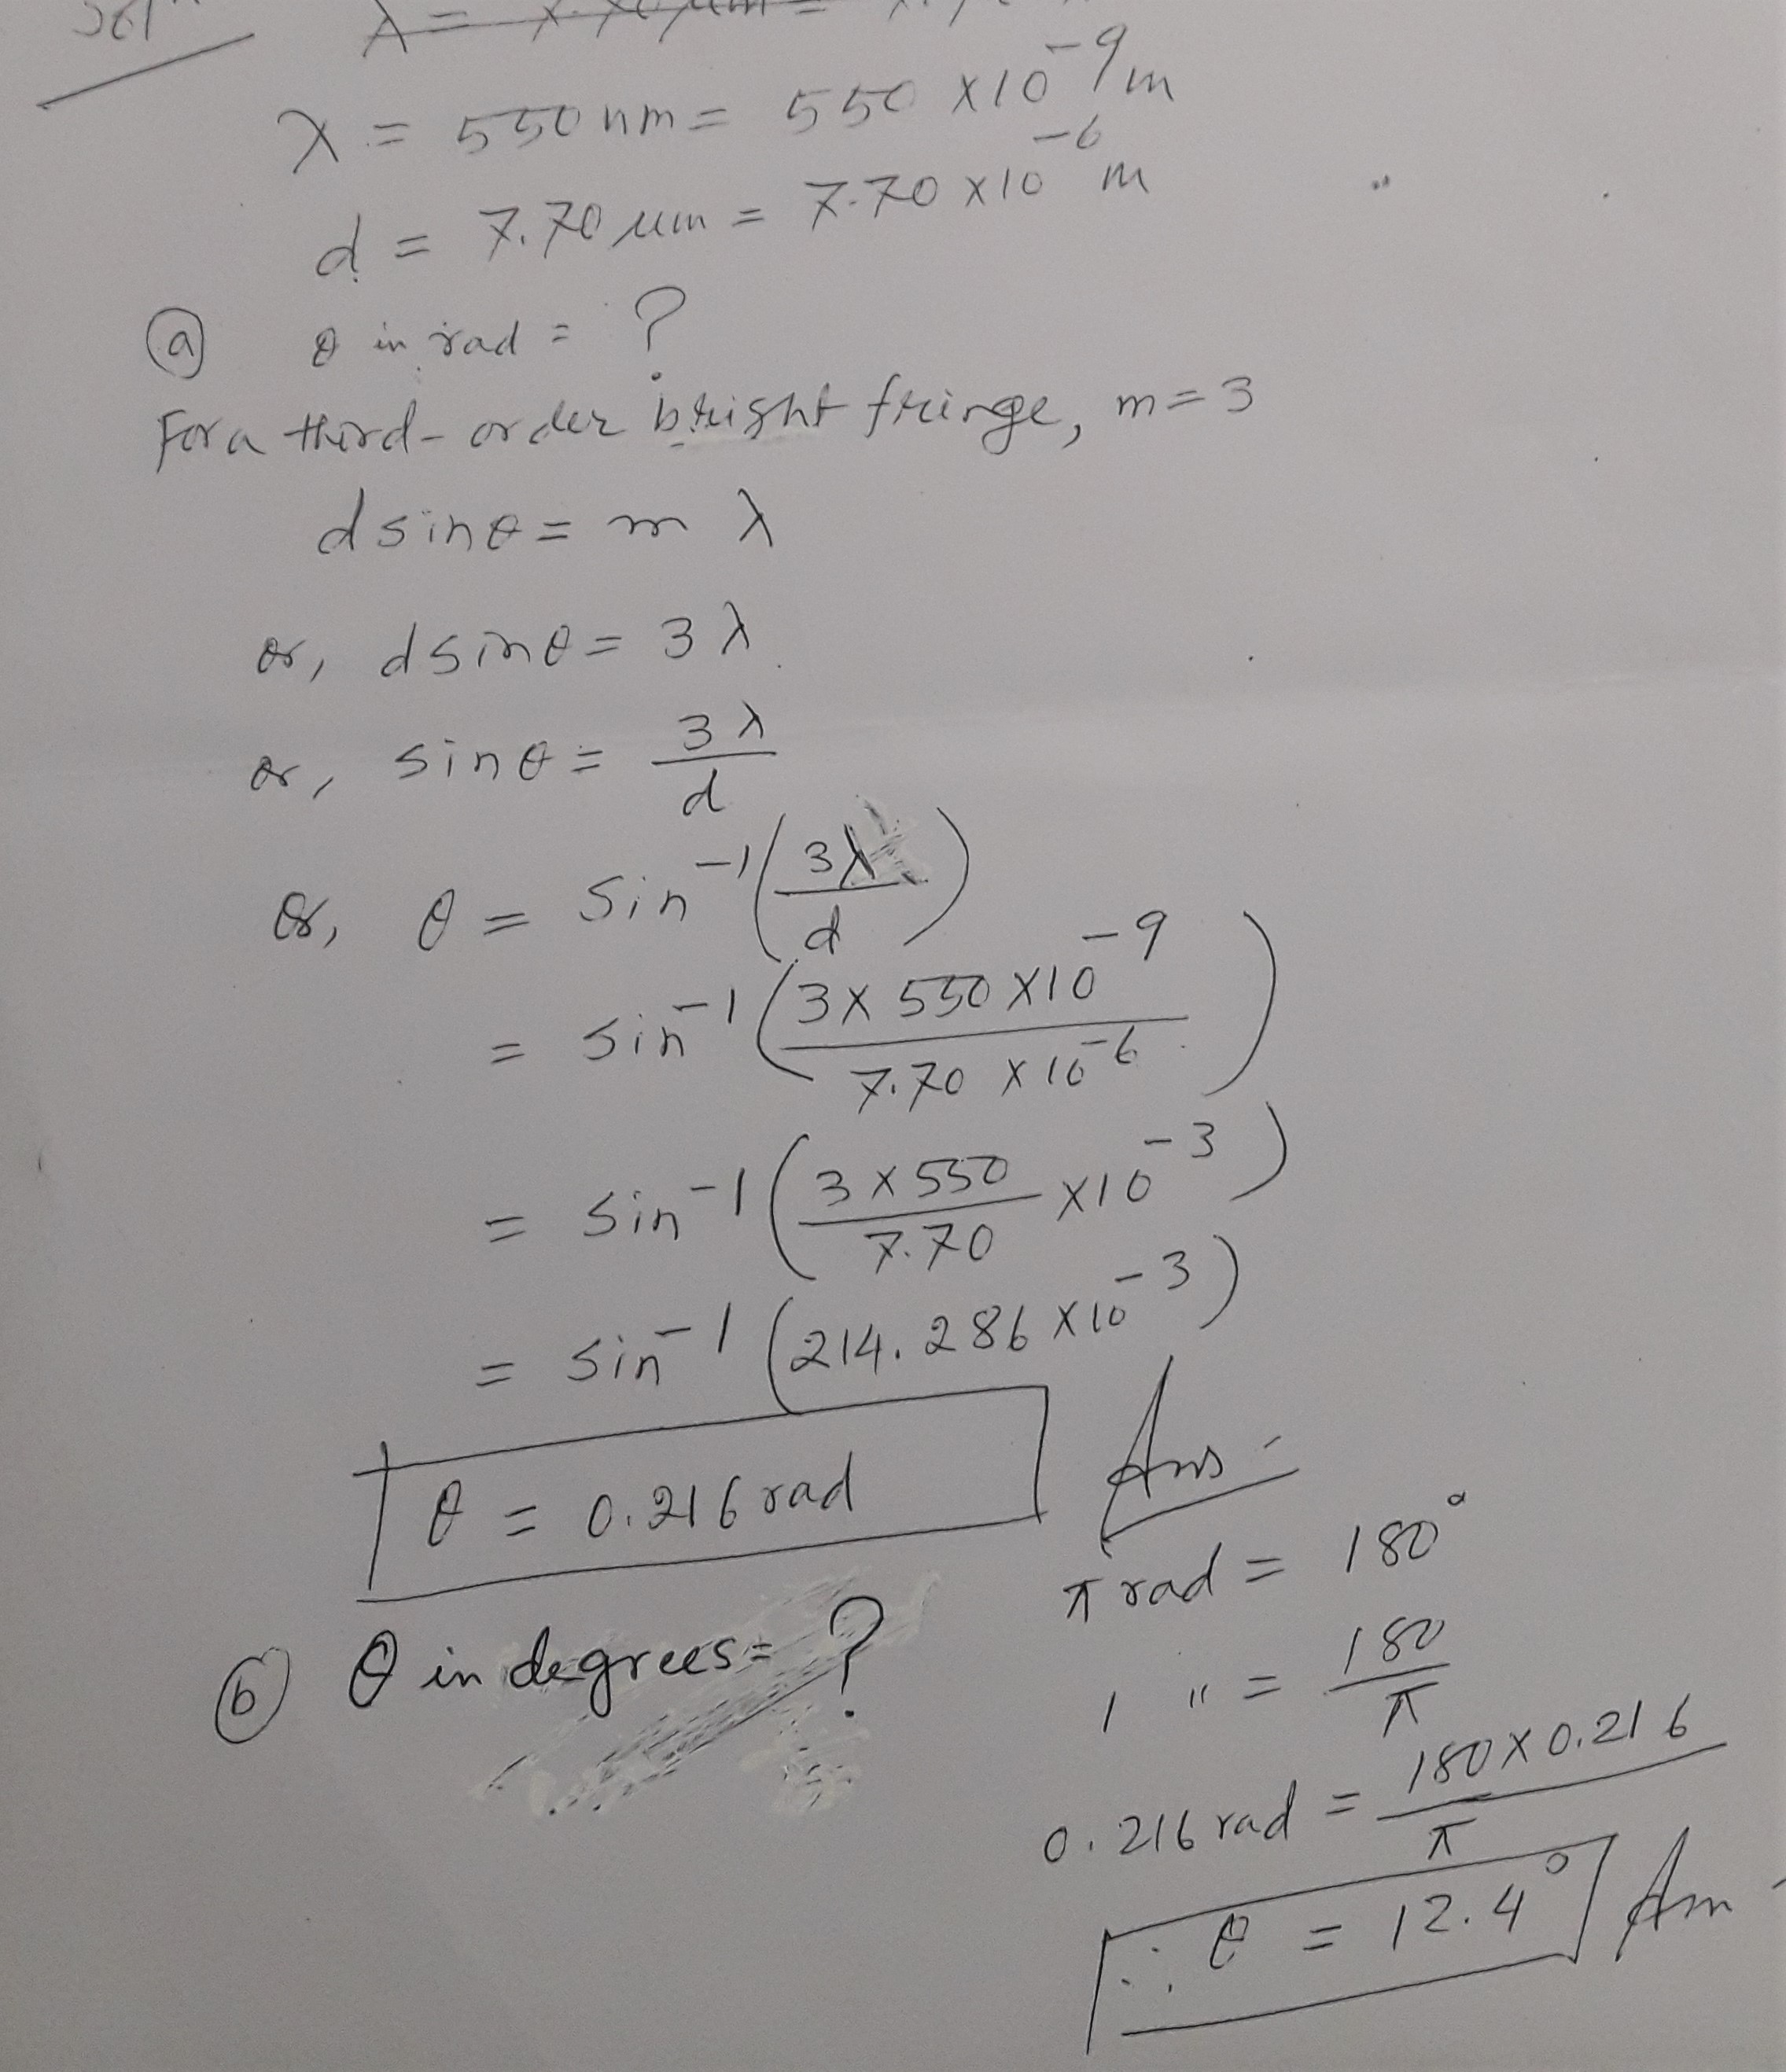 Solⁿ
λ = 550 nm = 550 ×10⁻⁹m
d = 7.70 μm = 7.70 ×10⁻⁶ m
(a) θ in rad = ?
For a third-order bright fringe, m=3
dsinθ = m λ
or, dsinθ = 3λ
or, sinθ = 3λ/d
or, θ = sin⁻¹(3λ/d)
= sin⁻¹(3× 550 ×10⁻⁹/7.70 ×10⁻⁶)
= sin⁻¹(3×550/7.70 ×10⁻³)
= sin⁻¹(214.286 ×10⁻³)
θ = 0.216 rad Ans
(b) θ in degrees = ?
π rad = 180°
1 " = 180/π
0.216 rad = 180×0.216/π
∴ θ = 12.4° Ans